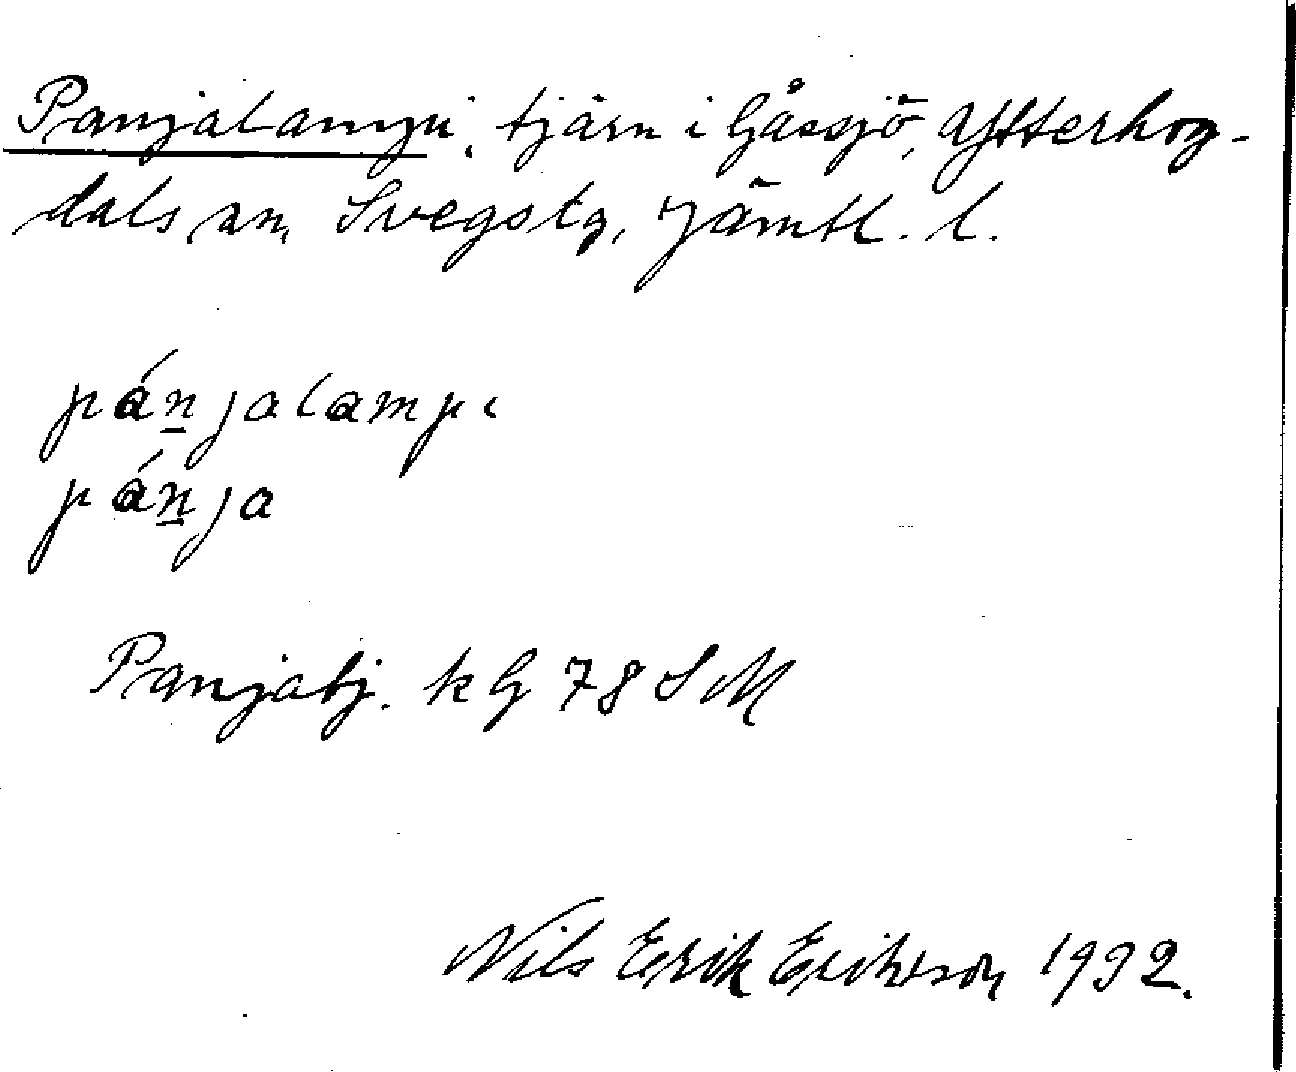 Panjalampi, tjärn i Gåssjö, Ytterhog-
dals sn, Svegs tg, Jämtl. l.
pán̲jalampi
pán̲ja
Panjatj. kG 78 SM
Nils Erik Erikson 1932.